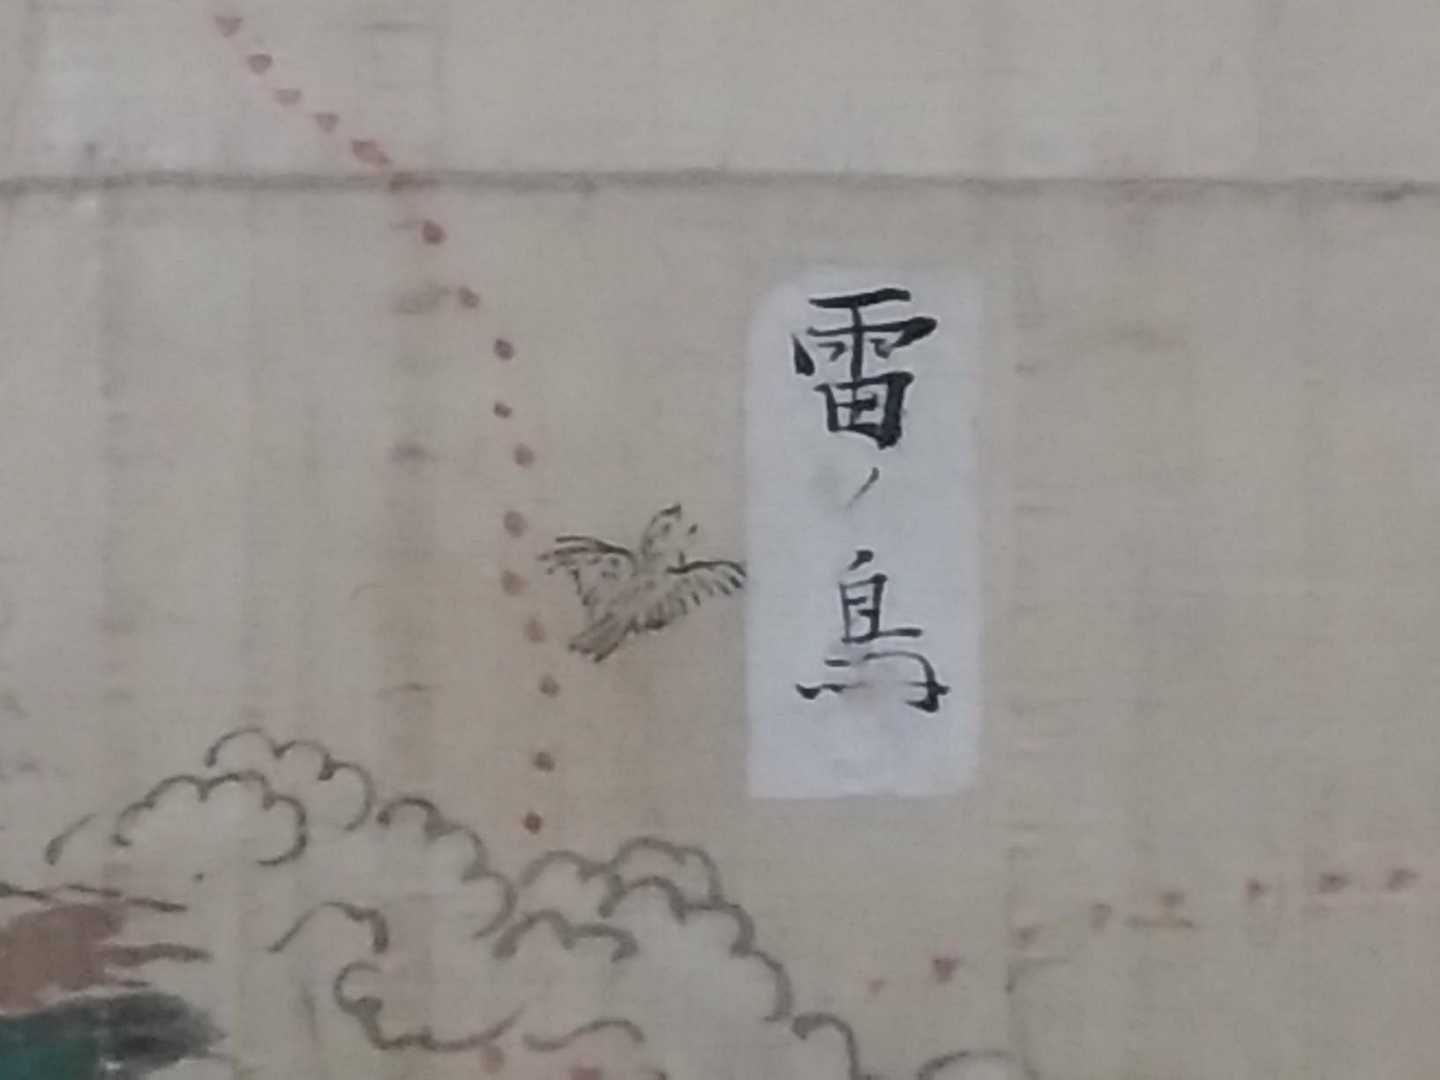 雷ノ鳥